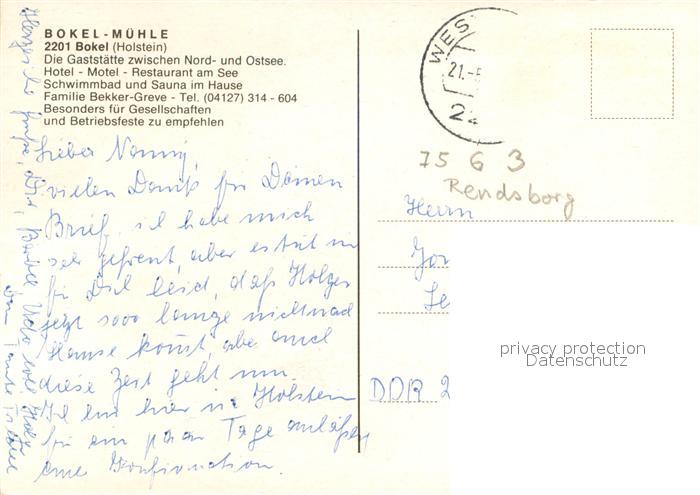 BOKEL - MÜHLE
2201 Bokel (Holstein)
Die Gaststätte zwischen Nord- und Ostsee.
Hotel - Motel - Restaurant am See
Schwimmbad und Sauna im Hause
Familie Bekker-Greve - Tel. (04127) 314 - 604
Besonders für Gesellschaften
und Betriebsfeste zu empfehlen
Lieber Nonny,
vielen Dank für Deinen
Brief, ich habe mich
sehr gefreut, aber es tut mir
für Dich leid, daß Holger
jetzt sooo lange nicht nach
Hause kommt, aber auch
diese Zeit geht um.
Ich bin hier in Holstein
für ein paar Tage anläßlich
einer Konfirmation.
Herzliche Grüße, Dir,
Dein Tante
WES
21.-
22
75 6 3
Rendsborg
Herrn
DDR 2
privacy protection
Datenschutz